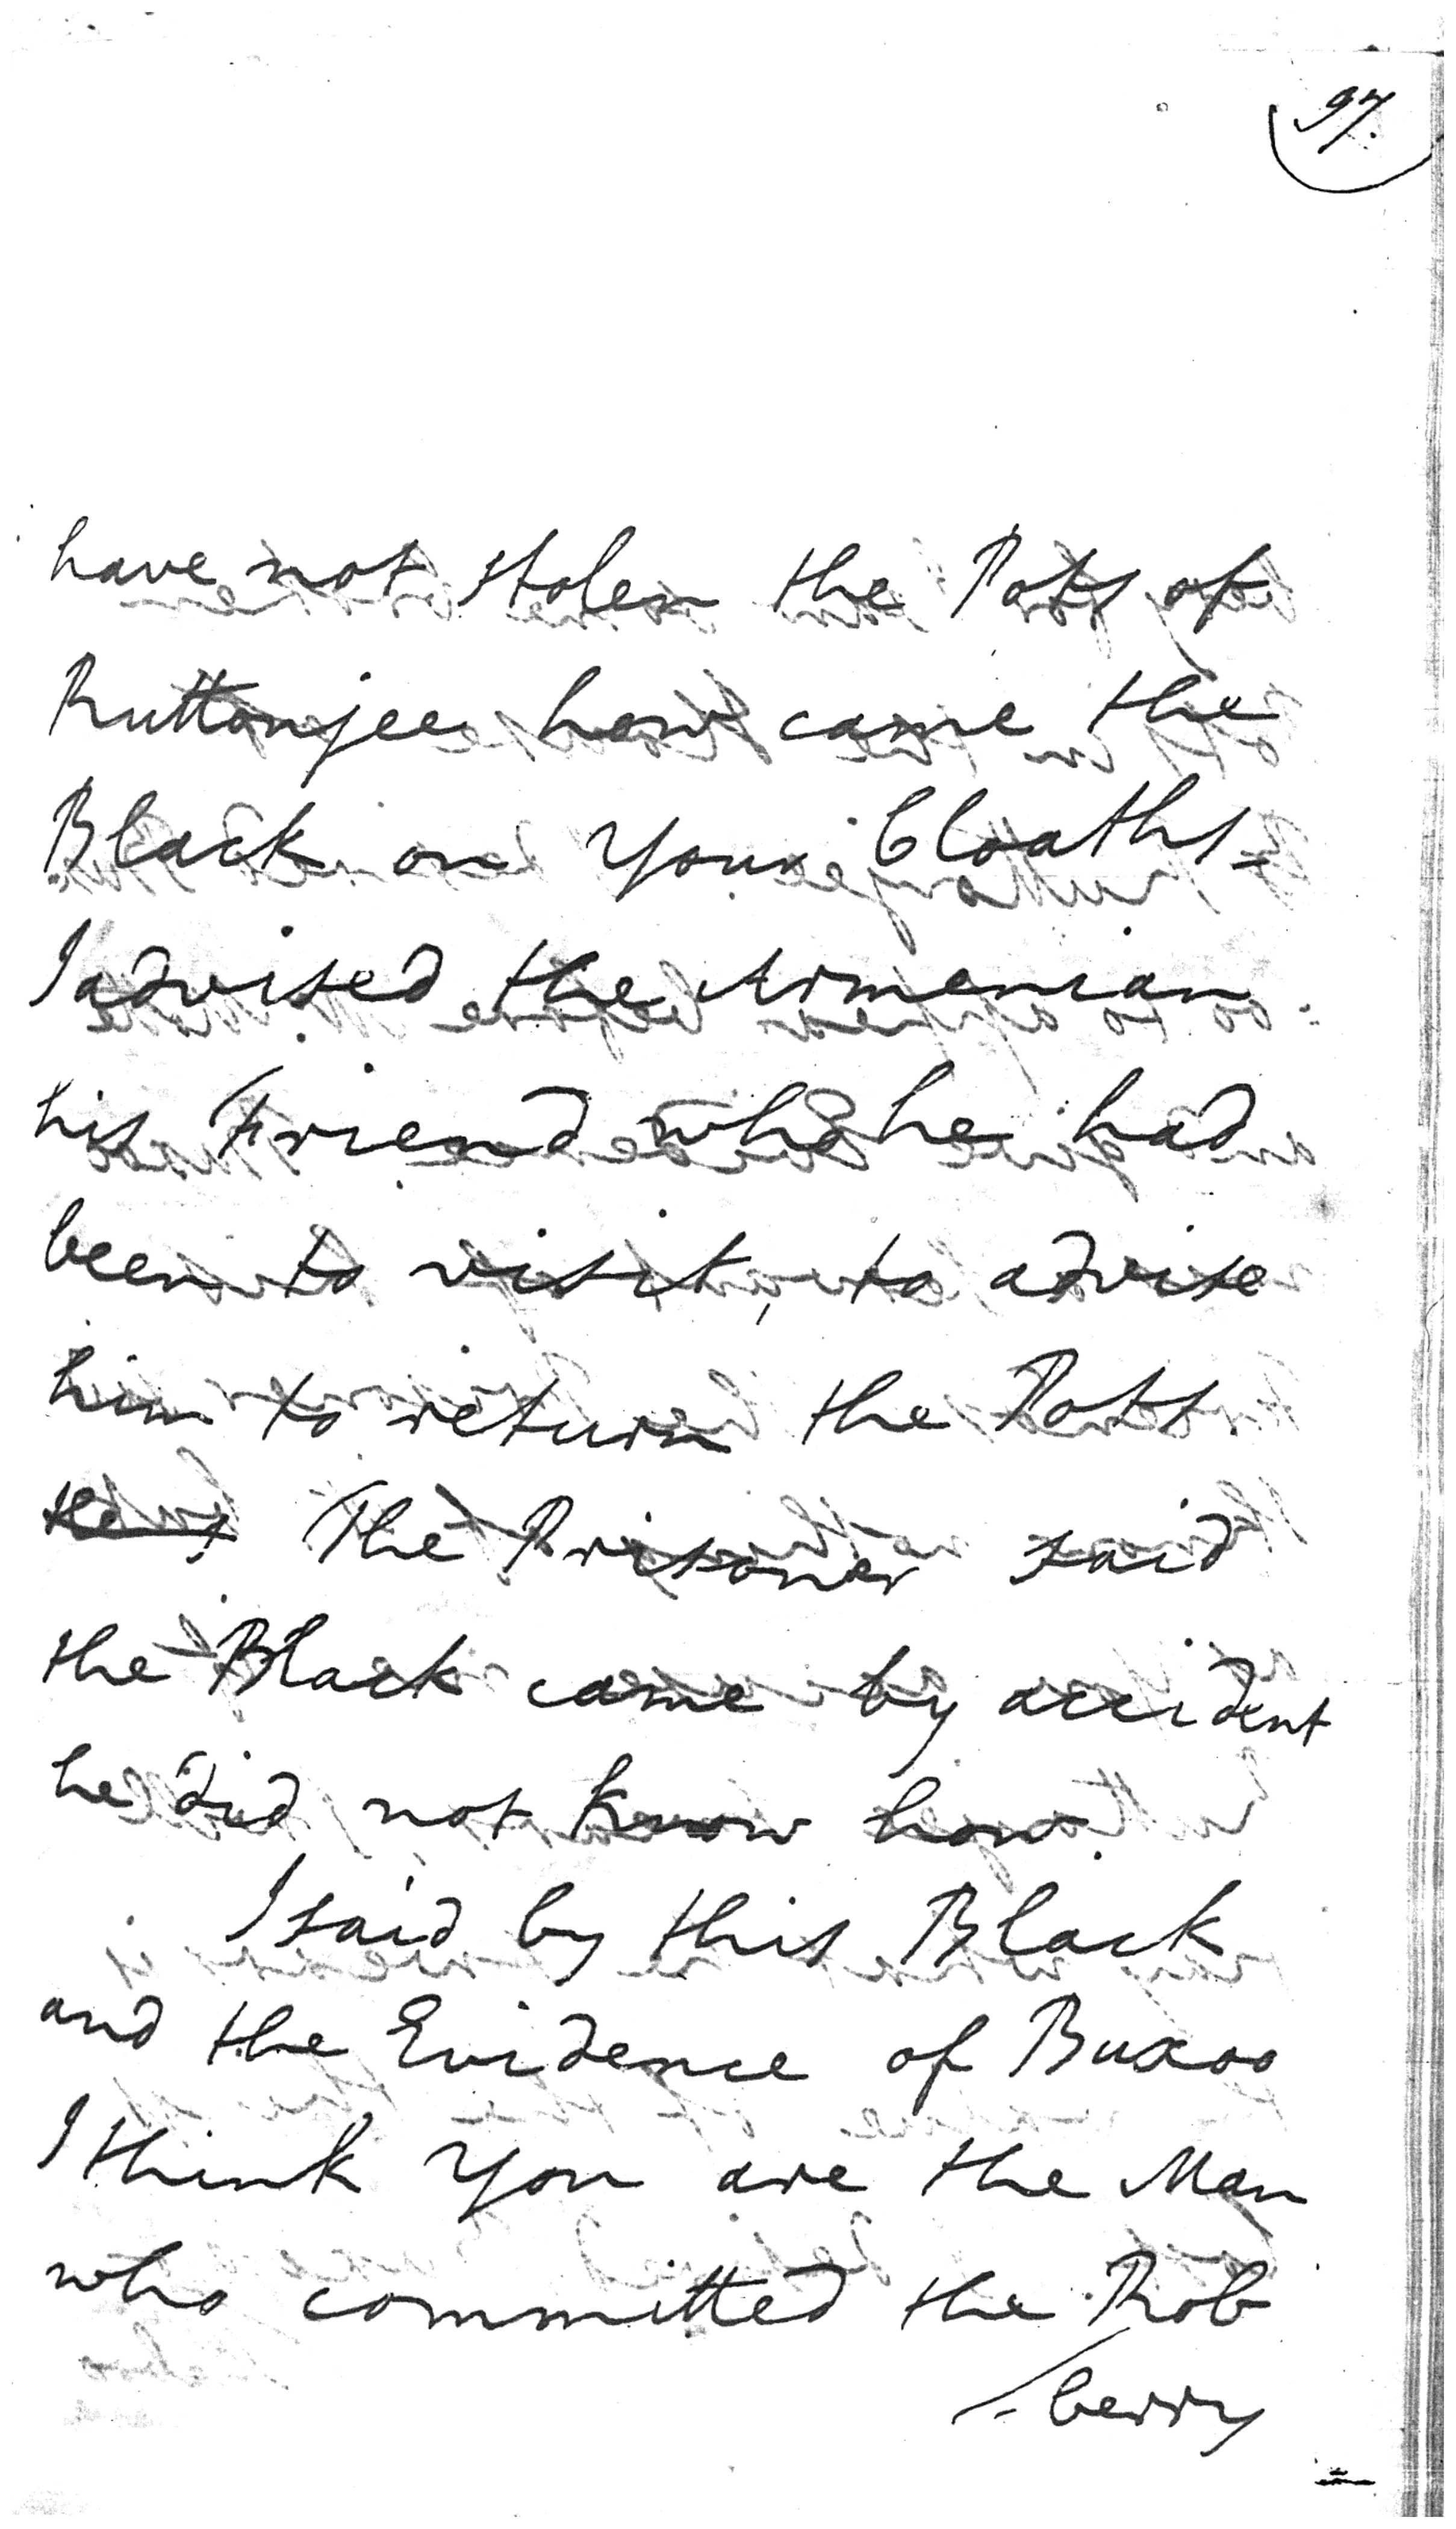 97.
have not stolen the Potts of
Ruttonjee how came the
Black on your Cloaths -
I advised the Armenian
his Friend who he had
been to visit, to advise
him to return the Potts
The Prisoner said
the Black came by accident
he did not know how.
I said by this Black
and the Evidence of Buxoo
I think you are the Man
who committed the Rob
berry